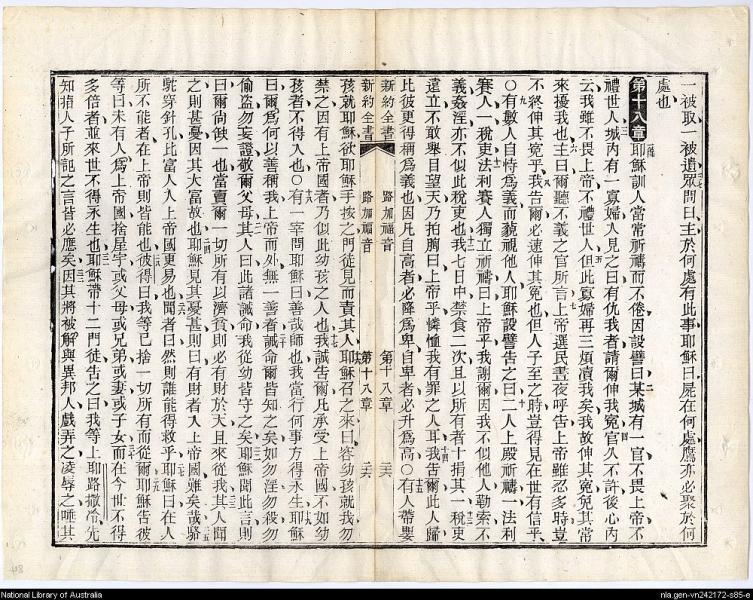 一被取一被遺眾問曰主於何處有此事耶穌曰屍在何處鷹亦必聚於何
處也
第十八章耶穌訓人當常祈禱而不倦因設譬曰某城有一官不畏上帝不
禮世人城內有一寡婦人見之曰有仇我者請爾伸我冤官久不許後心內
云我雖不畏上帝不禮世人但此寡婦再三煩瀆我矣我故伸其冤免其常
來擾我也主曰爾聽不義之官所言上帝選民晝夜呼告上帝雖忍多時豈
不終伸其冤乎我告爾必速伸其冤也但人子至之時豈得見在世有信乎
〇有數人自恃爲義而藐視他人耶穌設譬告之曰二人上殿祈禱一法利
賽人一稅吏法利賽人獨立祈禱曰上帝乎我謝爾因我不似他人勒索不
義姦淫亦不似此稅吏也我七日中禁食二次且以所有者十捐其一稅吏
遠立不敢舉目望天乃拍胸曰上帝乎憐恤我有罪之人耳我告爾此人歸
比彼更得稱爲義也因凡自高者必降爲卑自卑者必升爲高〇有人帶嬰
新約全書 路加福音 第十八章 二六
新約全書 路加福音 第十八章 二六
孩就耶穌欲耶穌手按之門徒見而責其人耶穌召之來曰容幼孩就我勿
禁之因有上帝國者乃似此幼孩之人也我誠告爾凡承受上帝國不如幼
孩者不得入也〇有一宰問耶穌曰善哉師也我當行何事方得永生耶穌
曰爾爲何以善稱我上帝而外無一善者誡命爾皆知之矣如勿淫勿殺勿
偷盜勿妄證敬爾父母其人曰此諸誡命我從幼皆守之矣耶穌聞此言則
曰爾尚缺一也當賣爾一切所有以濟貧則必有財於天且來從我其人聞
之則甚憂因其大富故也耶穌見其憂甚則曰有財者入上帝國難矣哉駱
駝穿針孔比富人入上帝國更易也聞者曰然則誰能得救乎耶穌曰在人
所不能者在上帝則皆能也彼得曰我等已捨一切所有而從爾耶穌告彼
等曰未有人爲上帝國捨屋宇或父母或兄弟或妻或子女而在今世不得
多倍者並來世不得永生也耶穌帶十二門徒告之曰我等上耶路撒冷先
知指人子所記之言皆必應矣因其將被解與異邦人戲弄之凌辱之唾其
National Library of Australia
nla.gen-vn242172-s85-e